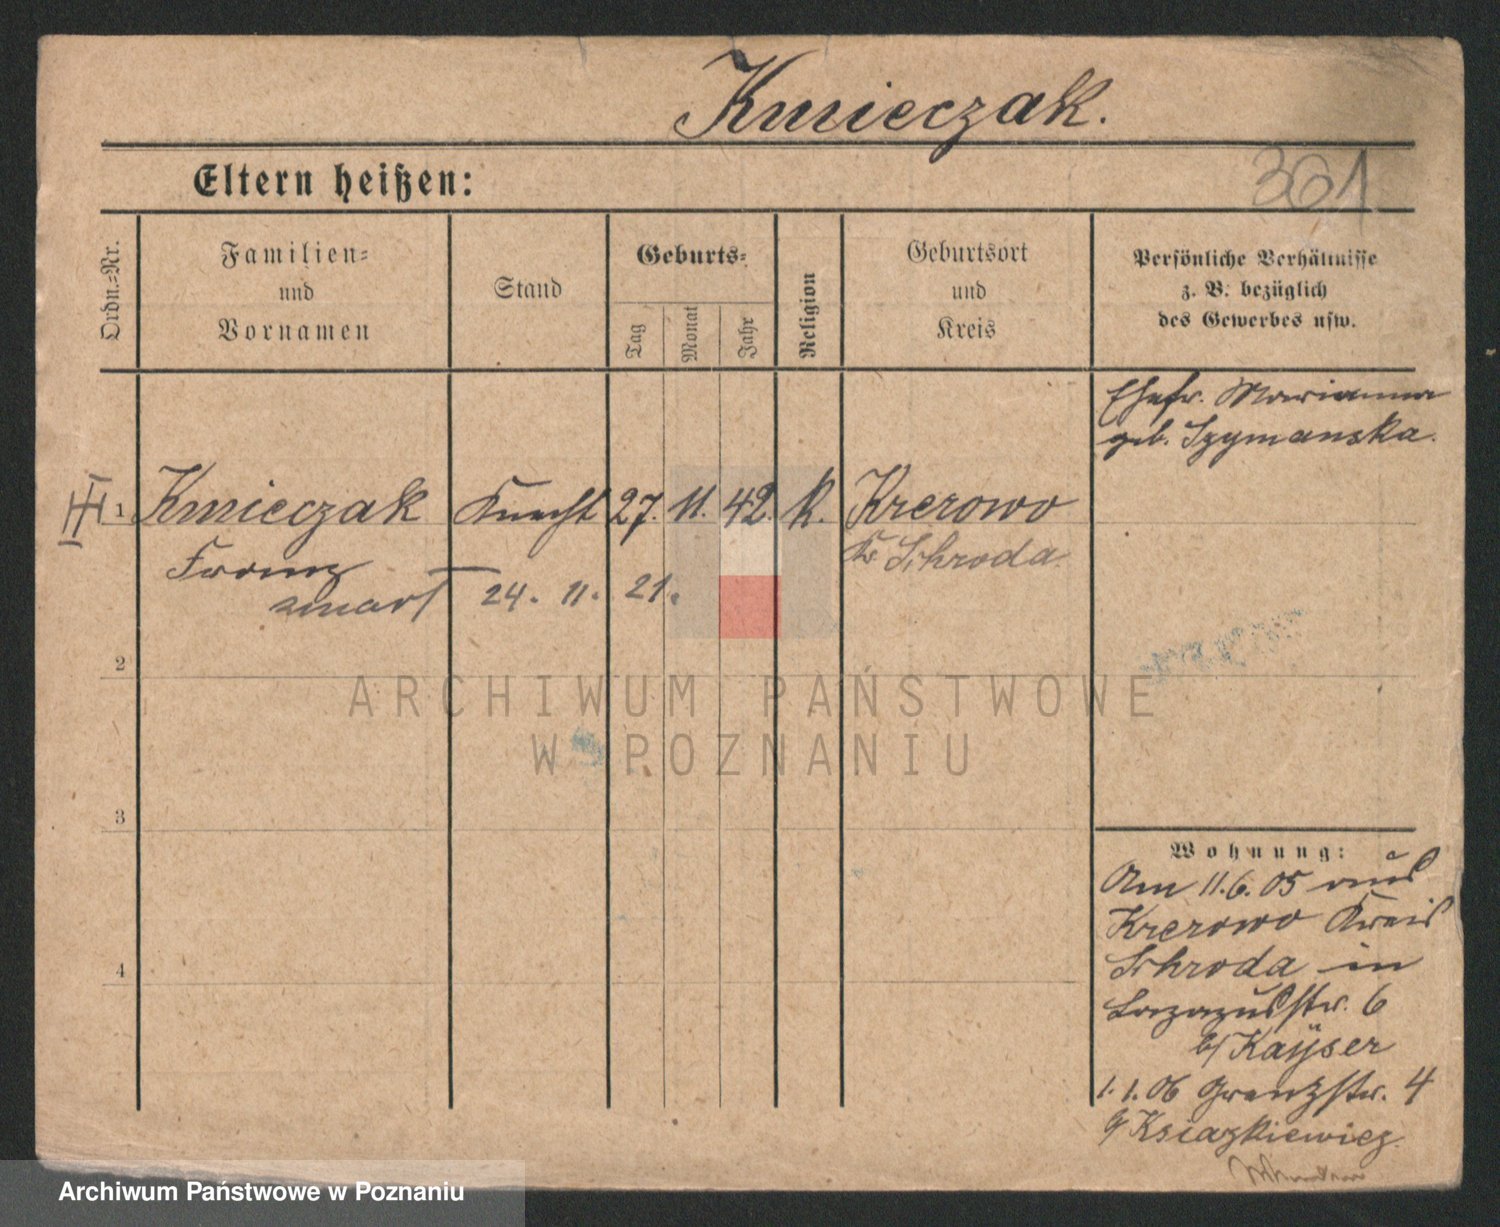 Kmieczak.
Eltern heißen:
361
Ordn.-Nr.
Familien-
und
Vornamen
Stand
Geburts-
Tag
Monat
Jahr
Religion
Geburtsort
und
Kreis
Persönliche Verhältnisse
z. B. bezüglich
des Gewerbes usw.
Ehefr. Marianna
geb. Szymanska.
1 Kmieczak Knecht 27. 11. 42. K. Krerowo
Franz
Kr Schroda.
zmarł 24. 11. 21.
2
ARCHIWUM PAŃSTWOWE
W POZNANIU
3
4
Wohnung:
Am 11.6.05 aus
Krerowo Kreis
Schroda in
Lazarusstr. 6
b/ Kaÿser
1.1.06 Grenzstr. 4
Ksiazkiewicz.
Archiwum Państwowe w Poznaniu